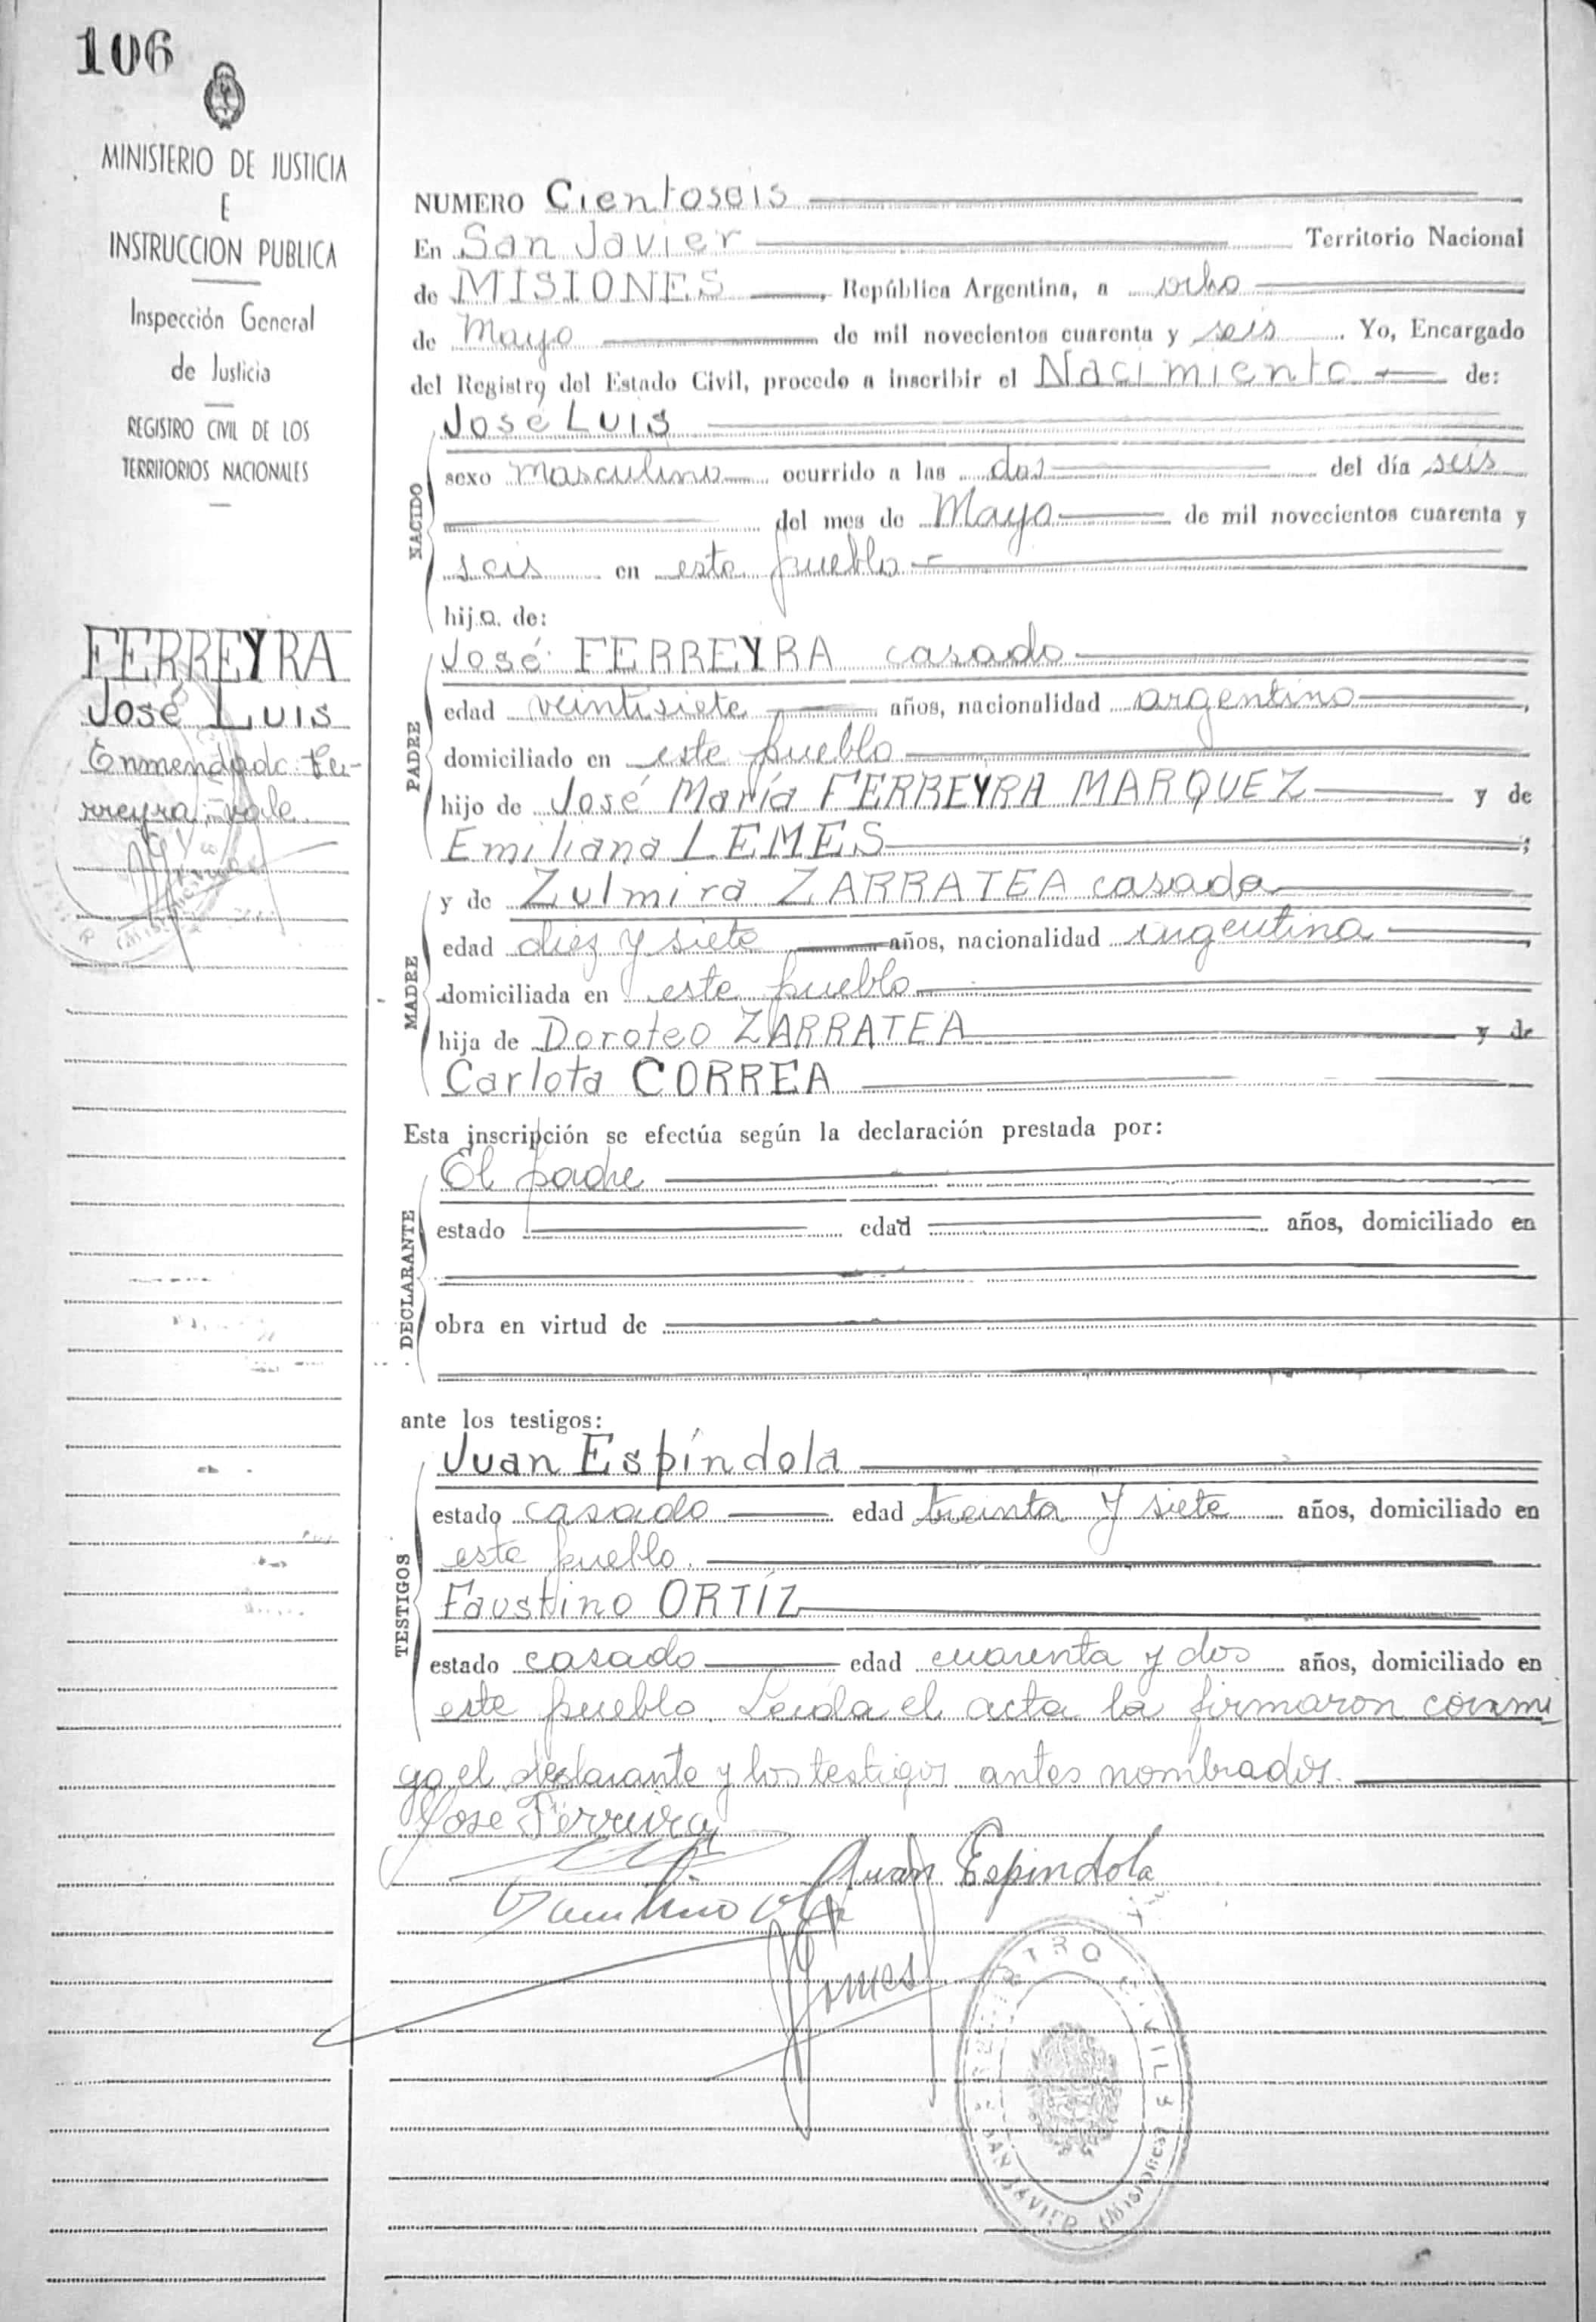 106
MINISTERIO DE JUSTICIA
E
INSTRUCCION PUBLICA
Inspección General
de Justicia
REGISTRO CIVIL DE LOS
TERRITORIOS NACIONALES
FERREYRA
José Luis
Enmendado: Fe-
rreyra, vale
NUMERO Cientoseis
En San Javier Territorio Nacional
de MISIONES, República Argentina, a ocho
de Mayo de mil novecientos cuarenta y seis. Yo, Encargado
del Registro del Estado Civil, procedo a inscribir el Nacimiento de:
NACIDO
José LUIS
sexo masculino ocurrido a las dos del día seis
del mes de Mayo de mil novecientos cuarenta y
seis en este pueblo
hijo de:
PADRE
José FERREYRA casado
edad veintisiete años, nacionalidad argentino,
domiciliado en este pueblo
hijo de José María FERREYRA MARQUEZ y de
Emiliana LEMES;
MADRE
y de Zulmira ZARRATEA casada
edad diez y siete años, nacionalidad argentina,
domiciliada en este pueblo
hija de Doroteo ZARRATEA y de
Carlota CORREA
Esta inscripción se efectúa según la declaración prestada por:
DECLARANTE
El padre
estado edad años, domiciliado en
obra en virtud de
ante los testigos:
TESTIGOS
Juan Espíndola
estado casado edad treinta y siete años, domiciliado en
este pueblo.
Faustino ORTIZ
estado casado edad cuarenta y dos años, domiciliado en
este pueblo. Leida el acta la firmaron conmi
go el declarante y los testigos antes nombrados.
José Ferreira
Juan Espindola
Gomes
REGISTRO CIVIL
SAN JAVIER (MISIONES)